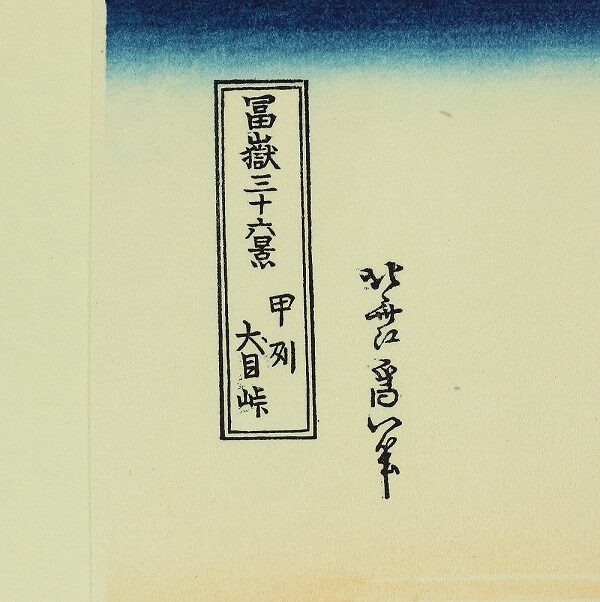 冨嶽三十六景
甲州
犬目峠
北斎改爲一筆